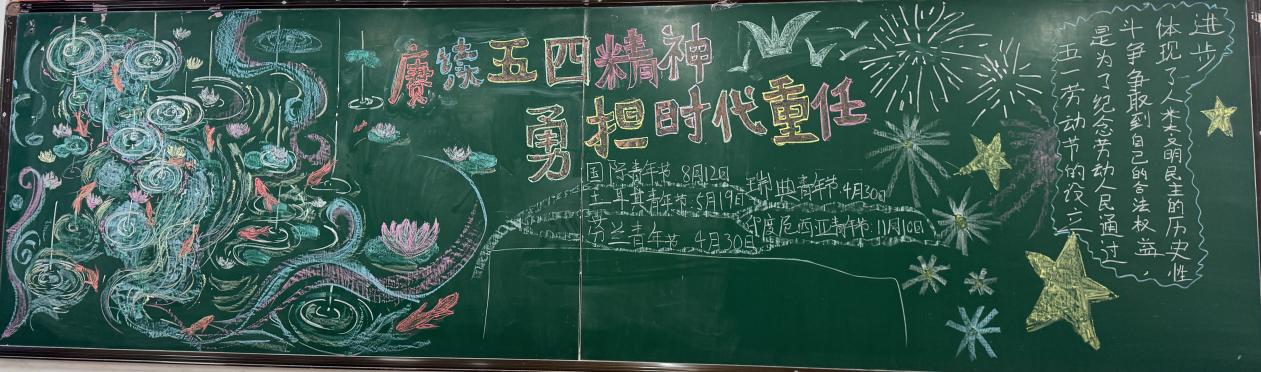 赓续五四精神
勇担时代重任
国际青年节 8月12日
土耳其青年节:5月19日
芬兰青年节:4月30日
瑞典青年节 4月30日
印度尼西亚青年节:11月10日
五一劳动节的设立
是为了纪念劳动人民通过
斗争争取到自己的合法权益,
体现了人类文明民主的历史性
进步